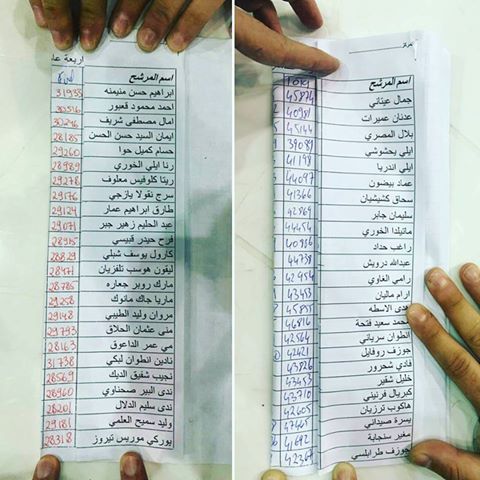 اربعة عا
اسم المرشح
31933 ابراهيم حسن منيمنه
30516 احمد محمود قعبور
30296 امال مصطفى شريف
28185 ايمان السيد حسن الحسن
29260 حسام كميل حوا
28989 رنا ايلي الخوري
29278 ريتا كلوفيس معلوف
29176 سرج نقولا يازجي
29124 طارق ابراهيم عمار
29071 عبد الحليم زهير جبر
28915 فرح حيدر قبيسي
28829 كارول يوسف شبلي
28471 ليفون هوسب تلفزيان
28785 مارك روبر جعاره
29258 ماريا جاك مانوك
29148 مروان وليد الطيبي
29793 منى عثمان الحلاق
28163 مي عمر الداعوق
31738 نادين انطوان لبكي
28569 نجيب شفيق الديك
28960 ندى البير صحناوي
28201 ندى سليم الدلال
29181 وليد سميح العلمي
28318 يوركي موريس تيروز
مركز
اسم المرشح
45874 جمال عيتاني
40981 عدنان عميرات
45144 بلال المصري
39089 ايلي يحشوشي
41198 ايلي اندريا
44097 عماد بيضون
41366 سحاق كشيشيان
42869 سليمان جابر
44454 ماتيلدا الخوري
40986 راغب حداد
44738 عبدالله درويش
42454 رامي الغاوي
43453 ارام ماليان
45855 هدى الاسطه
46816 محمد سعيد فتحة
42564 انطوان سرياني
42421 جوزف روفايل
43826 فادي شحرور
43453 خليل شقير
43710 كبريال فرنيني
42605 هاكوب ترزيان
47465 يسرة صيداني
41692 مغير سنجابة
42364 جوزف طرابلسي